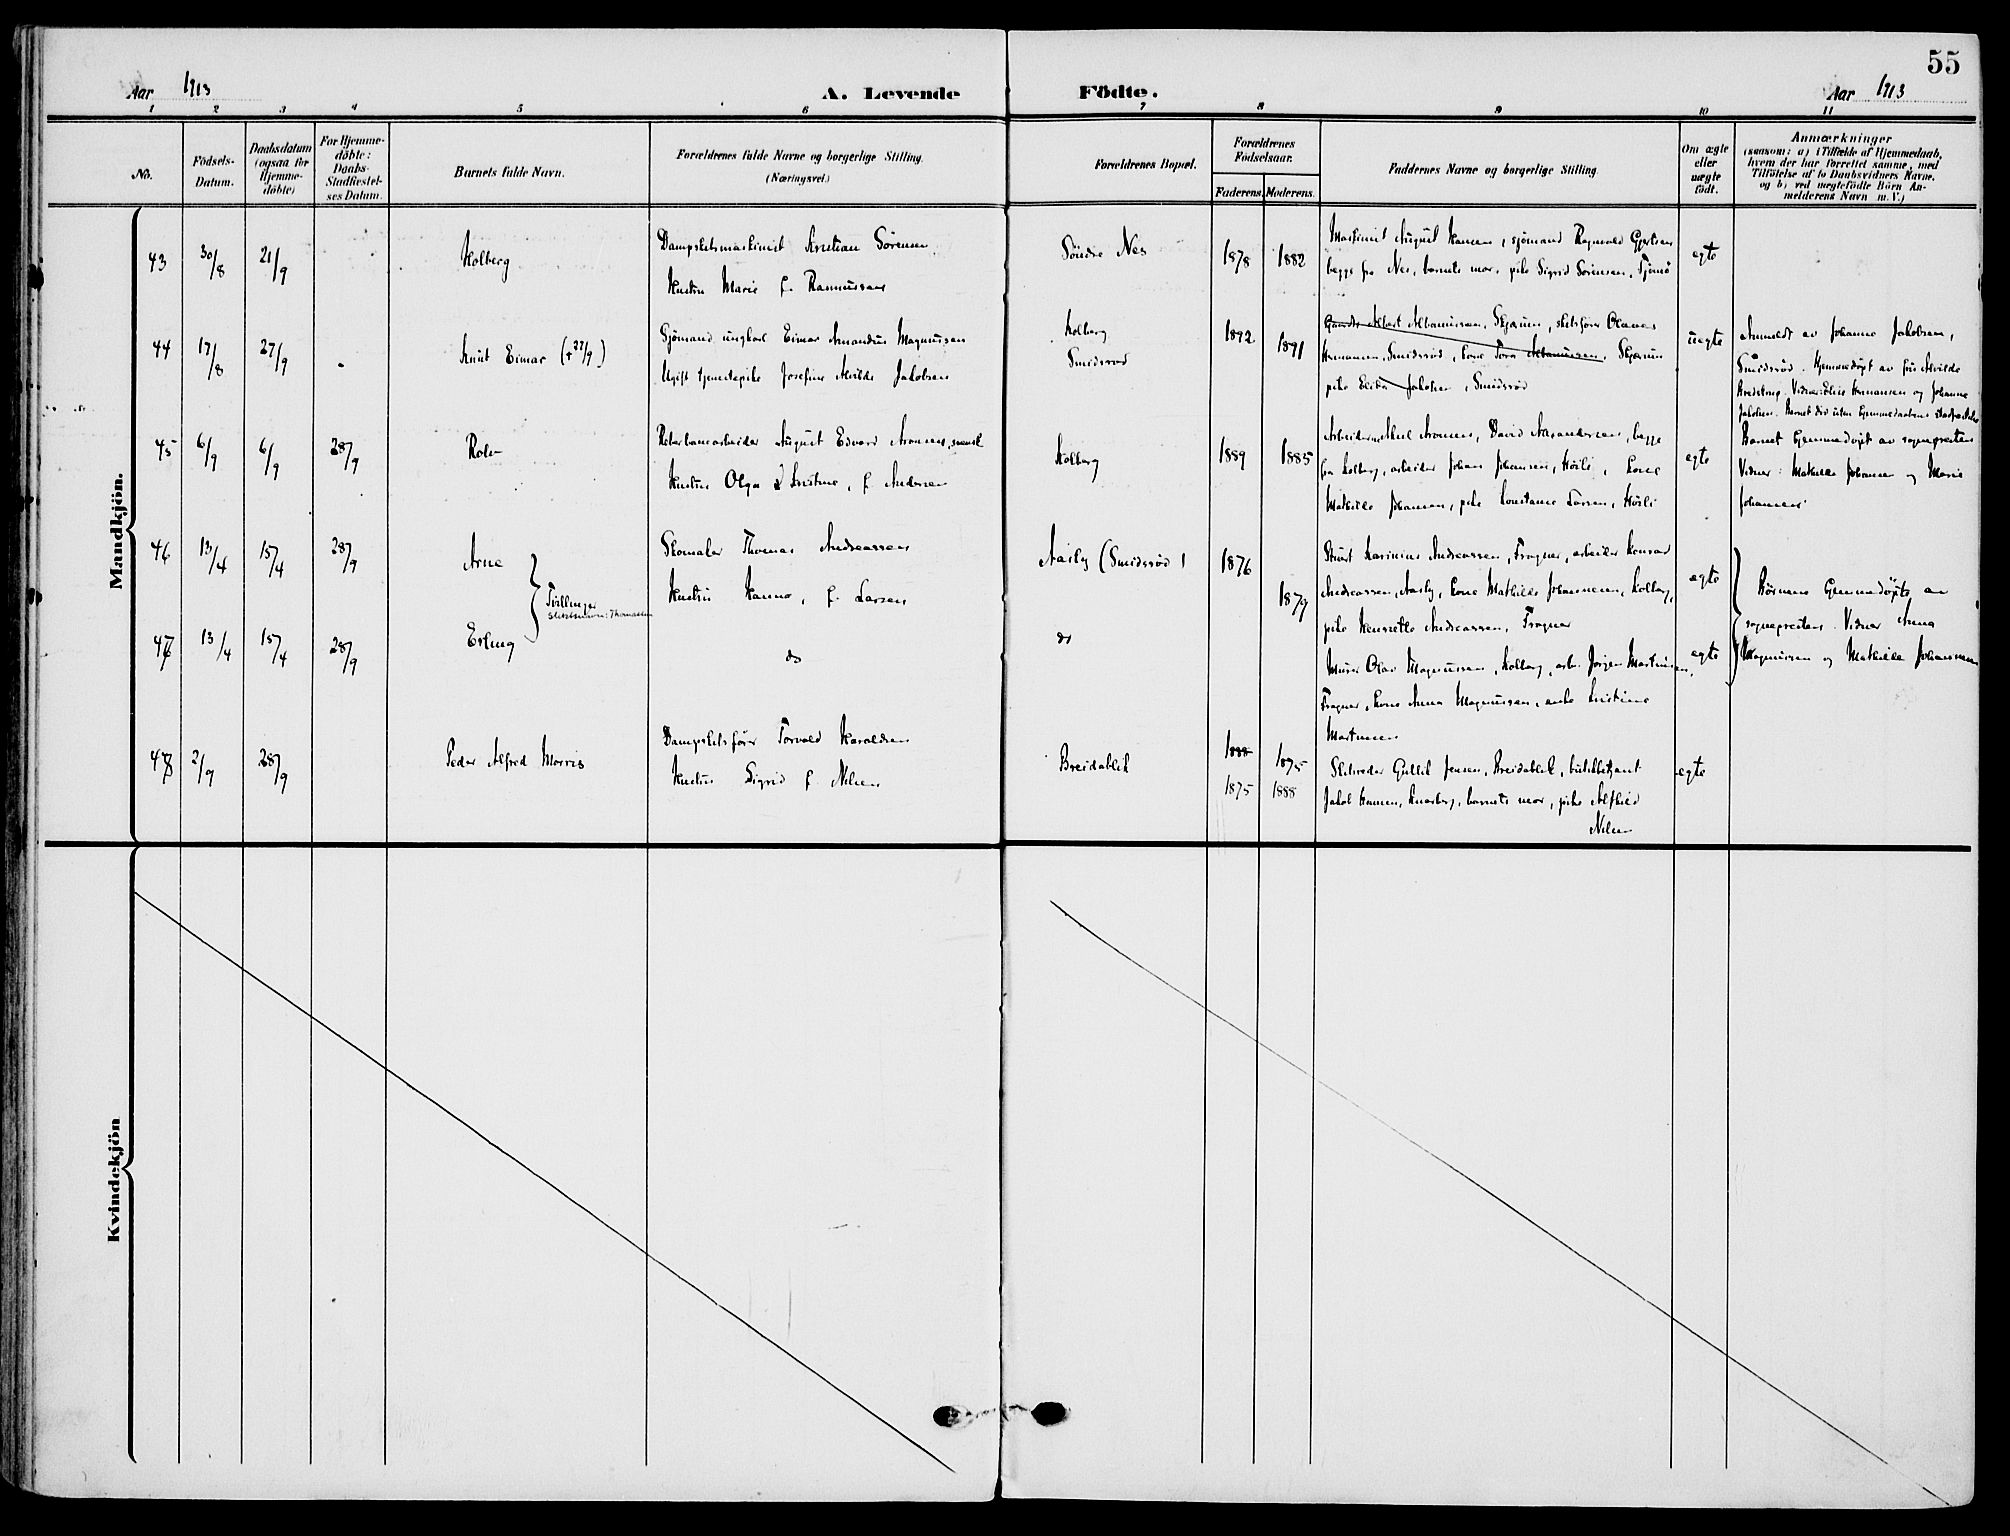 55
Aar 1913
A. Levende Födte.
Aar 1913
1 2 3 4 5 6 7 8 9 10 11
No.
Födsels-
Datum.
Daabsdatum
(ogsaa for
Hjemme-
döbte)
For Hjemme-
döbte:
Daabs-
Stadfæstel-
ses Datum.
Barnets fulde Navn.
Forældrenes fulde Navne og borgerlige Stilling.
(Næringsvei.)
Forældrenes Bopæl.
Forældrenes
Födselsaar.
Faderens.
Moderens.
Faddernes Navne og borgerlige Stilling.
Om ægte
eller
uægte
födt.
Anmærkninger
(saasom: a) i Tilfælde af Hjemmedaab,
hvem der har forrettet samme, med
Tilföielse af to Daabsvidners Navne,
og b) ved uægtefödte Börn An-
melderens Navn m. V.)
Mandkjön.
43 30/8 21/9
Holberg
Dampskibsmaskinist Kristian Sörensen
Hustru Marie f. Rasmussen
Söndre Nes
1878 1882
Maskinist August Hansen, sjömand Ragnvald Gjertsen
begge fra Nes, barnets mor, pike Sigrid Sörensen, Tjömö
egte
44 17/8 27/9
Knut Einar (+27/9)
Sjömand ungkarl Einar Amandus Magnussen
Ugift tjenestepike Josefine Alvilde Jakobsen
Kolberg
Smidsröd
1892 1891
Albert Albanussen, Skjærum, skibsförer
Hermansen, Smidsröd, kone Albanussen, Skjærum
pike Jakobsen, Smidsröd
uegte
Anmeldt av Johanne Jakobsen,
Smidsröd. Hjemmedöpt av fru Alvilde
Vidner: Hermansen og Johanne
Jakobsen. Barnet död uten
45 6/9 6/9 28/9
Rolv
August Edvard Aronsen, svensk
Hustru Olga Kristine, f. Andersen
Kolberg
1889 1885
Arbeiderne Aronsen, David Alexandersen, begge
fra Kolberg, arbeider Johan Johansen, Höili, kone
Mathilde Johansen, pike Konstanse Larsen, Höili
egte
Barnet hjemmedöpt av sognepresten
Vidner: Mathilde Johansen og Marie
Johansen
46 13/4 15/4 28/9
Arne
Tvillinger
Slektsnavn: Thomassen
Skomaker Thomas Andreassen
Hustru Hanna, f. Larsen
Aasly (Smidsröd)
1876 1879
Andreassen, Fragner, arbeider Konrad
Andreassen, Aasly, kone Mathilde Johannessen, Kolberg,
pike Henriette Andreassen, Fragner
egte
Börnene hjemmedöpte av
sognepresten. Vidner Anna
Magnussen og Mathilde Johannessen
47 13/4 15/4 28/9
Erling
do
do
Murer Olav Magnussen, Kolberg, arb. Jörgen Martinsen,
Fragner, kone Anna Magnussen, enke Kristine
Martinsen
egte
48 2/9 28/9
Peder Alfred Morris
Dampskibsförer Torvald Haraldsen
Hustru Sigrid f. Nilsen
Breidablik
1888 1875
1875 1888
Skibsreder Gullik Jensen, Breidablik, butikbetjent
Jakob Hansen, Knarberg, barnets mor, pike Alfhild
Nilsen
egte
Kvindekjön